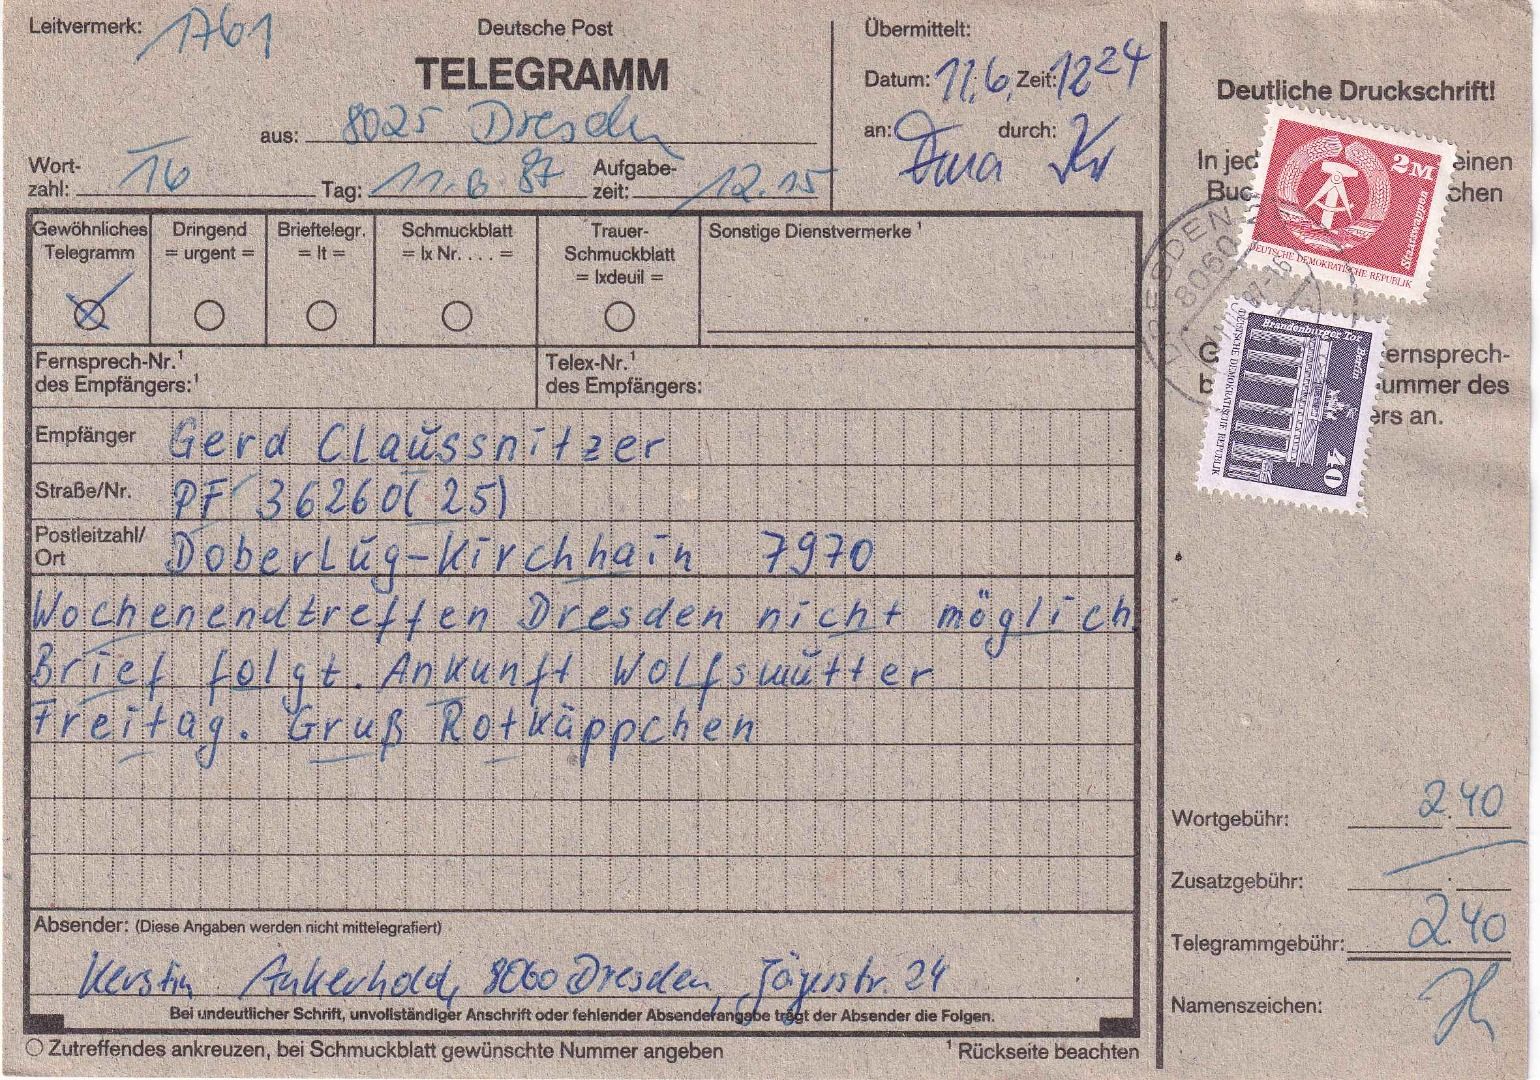 Leitvermerk: 1761
Deutsche Post
TELEGRAMM
aus: 8025 Dresden
Wort-
zahl: 16
Tag: 11.6.87
Aufgabe-
zeit: 12.15
Übermittelt:
Datum: 11.6. Zeit: 12 24
an: durch:
Deutliche Druckschrift!
In jed einen
Buc chen
2 M
Staatswappen
DEUTSCHE DEMOKRATISCHE REPUBLIK
DRESDEN
8060
Gewöhnliches
Telegramm
Dringend
= urgent =
Brieftelegr.
= lt =
Schmuckblatt
= lx Nr. . . . =
Trauer-
Schmuckblatt
= lxdeuil =
Sonstige Dienstvermerke ¹
Fernsprech-Nr.¹
des Empfängers:¹
Telex-Nr.¹
des Empfängers:
G ernsprech-
b ummer des
ers an.
Brandenburger Tor Berlin
DEUTSCHE DEMOKRATISCHE REPUBLIK
40
Empfänger Gerd Claussnitzer
Straße/Nr. PF 36260(25)
Postleitzahl/
Ort Doberlug-Kirchhain 7970
Wochenendtreffen Dresden nicht möglich.
Brief folgt. Ankunft Wolfsmutter
Freitag. Gruß Rotkäppchen
Wortgebühr: 2.40
Zusatzgebühr:
Telegrammgebühr: 2.40
Namenszeichen:
Absender: (Diese Angaben werden nicht mittelegrafiert)
Kerstin Ankerhold, 8060 Dresden, Jägerstr. 24
Bei undeutlicher Schrift, unvollständiger Anschrift oder fehlender Absenderangabe trägt der Absender die Folgen.
Zutreffendes ankreuzen, bei Schmuckblatt gewünschte Nummer angeben
¹ Rückseite beachten